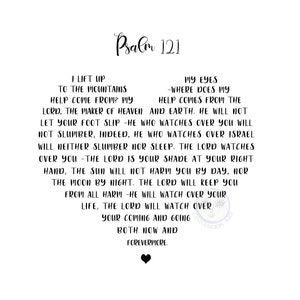 Psalm 121
I LIFT UP MY EYES
TO THE MOUNTAINS -WHERE DOES MY
HELP COME FROM? MY HELP COMES FROM THE
LORD, THE MAKER OF HEAVEN AND EARTH. HE WILL NOT
LET YOUR FOOT SLIP -HE WHO WATCHES OVER YOU WILL
NOT SLUMBER, INDEED, HE WHO WATCHES OVER ISRAEL
WILL NEITHER SLUMBER NOR SLEEP. THE LORD WATCHES
OVER YOU -THE LORD IS YOUR SHADE AT YOUR RIGHT
HAND, THE SUN WILL NOT HARM YOU BY DAY, NOR
THE MOON BY NIGHT. THE LORD WILL KEEP YOU
FROM ALL HARM -HE WILL WATCH OVER YOUR
LIFE, THE LORD WILL WATCH OVER
YOUR COMING AND GOING
BOTH NOW AND
FOREVERMORE.